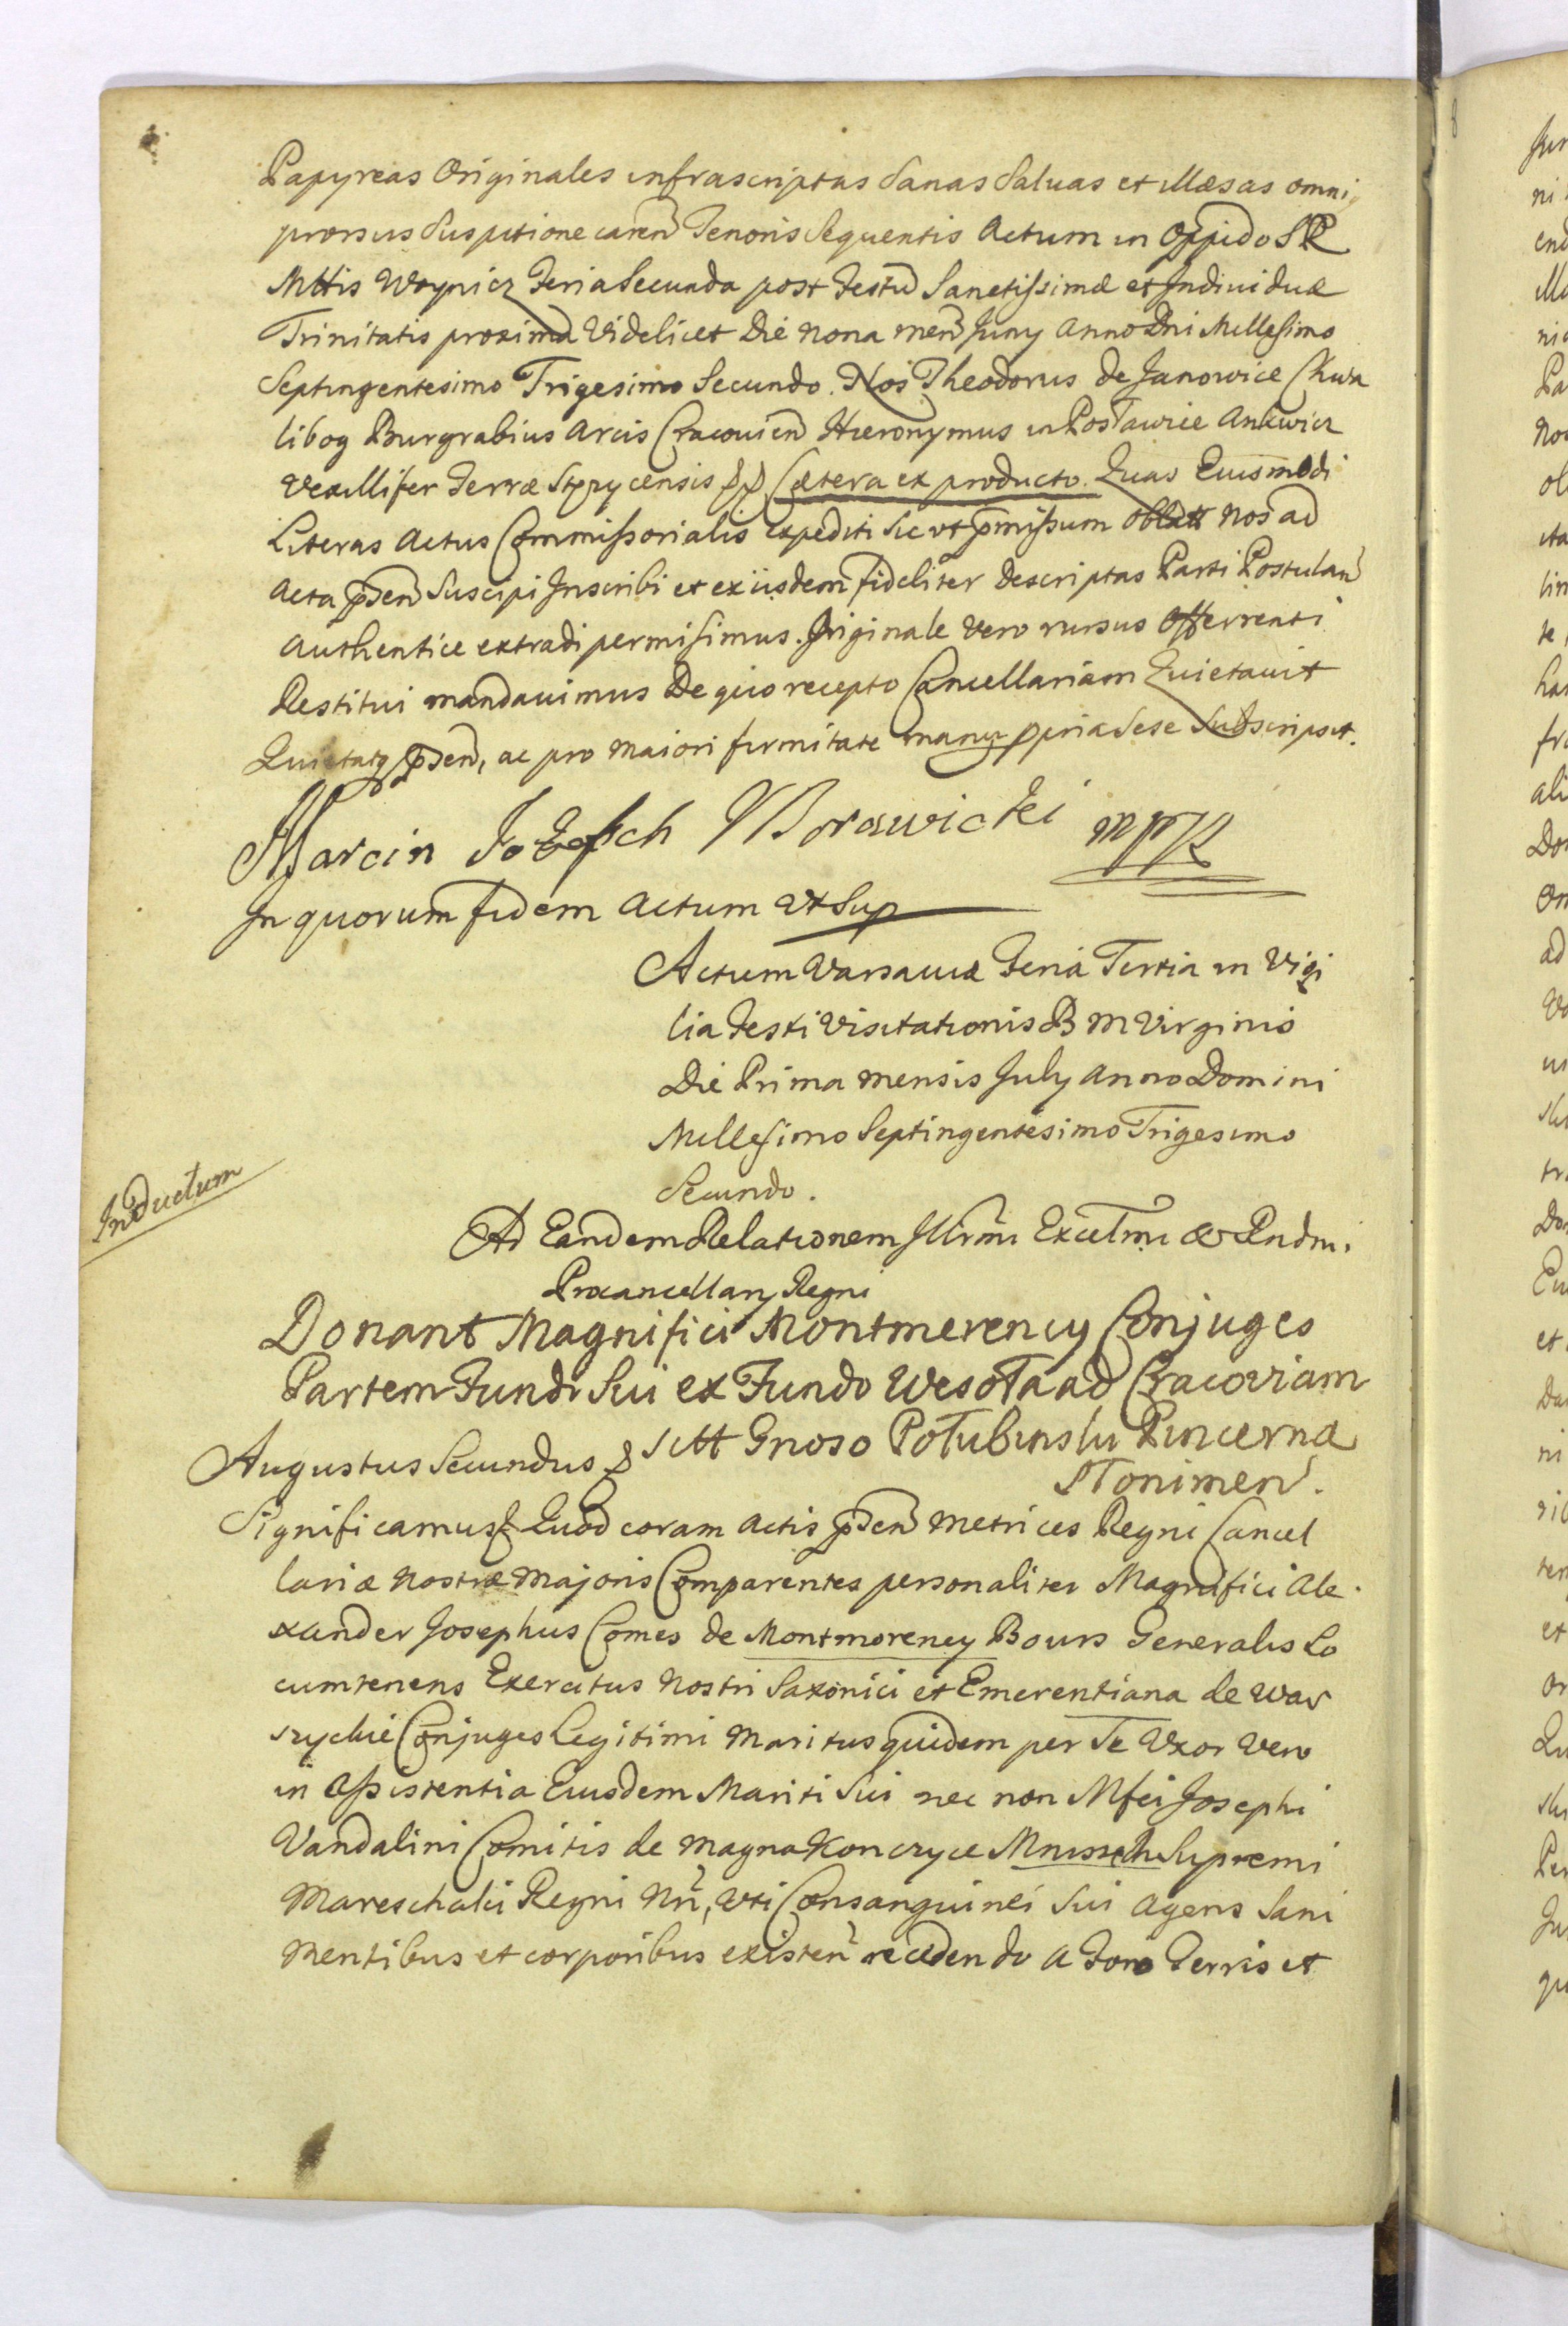 Papyreas Originales infrascriptas Sanas Saluas et illæsas omni
prorsus Suspitione caren̄ Tenoris Sequentis Actum in Oppido S R
Mttis Woynicz Feria Secunda post Festū Sanctissimæ et Indiuiduæ
Trinitatis proxima Videlicet Die nona men̄ Juny Anno Dni Millesimo
Septingentesimo Trigesimo Secundo. Nos Theodorus de Janowice Chwa
libog Burgrabius Arcis Cracouien̄ Hieronymus in Postawice Ankwicz
Vexillifer Terræ Stęzycensis Cætera ex producto. Quas Euismodi
Literas Actus Commissorialis expediti Sic vt p̄missum oblatt Nos ad
Acta p̄sen̄ Suscipi Inscribi et ex iisdem fideliter Descriptas Parti Postulan̄
Authentice extradi permisimus. Originale Vero rursus Offerrenti
Restitui mandauimus De quo recepto Cancellariam Quietauit
Quietatq p̄sen̄, ac pro Maiori firmitate manu ppria Sese Subscripsit.
Marcin Jozeph Morawicki mpR
In quorum fidem Actum Vt Sup
Actum Varsauiæ Feria Tertia in Vigi
lia Festi Visitationis B M Virginis
Die Prima Mensis July Anno Domini
Millesimo Septingentesimo Trigesimo
Secundo.
Inductum
Ad Eandem Relationem Illrmi Excelmi & Rndmi.
Procancellary Regni
Donant Magnifici Montmerency Conjuges
Partem Fundi Sui ex Fundo Wesoła ad Cracoviam
sitt Gnoso Potubinski Pincernæ
Słonimen̄.
Augustus Secundus &
Significamus & Quod coram Actis p̄sen̄ Metrices Regni Cancel
lariæ Nostræ Majoris Comparentes personaliter Magnifici Ale
xander Josephus Comes de Montmorency Bours Generalis Lo
cumtenens Exercitus Nostri Saxonici et Emerentiana de War
szyckie Conjuges Legitimi Maritus quidem per Se Vxor Vero
in Assistentia Eiusdem Mariti Sui nec non Mfci Josephi
Vandalini Comitis de Magna Konczyce Mniszech Supremi
Mareschalci Regni Nri, Vti Consanguinei Sui Agens Sani
Mentibus et corporibus existen̄ recedendo a Foro Terris et